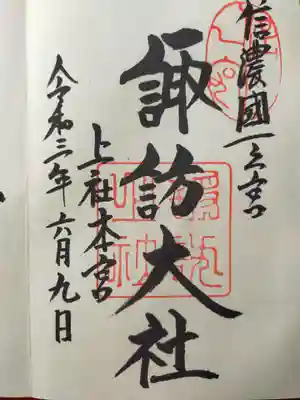 信濃國一之宮
諏訪大社
上社本宮
令和三年六月九日